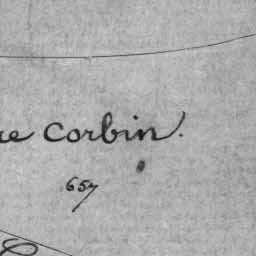 ue Corbin.
657